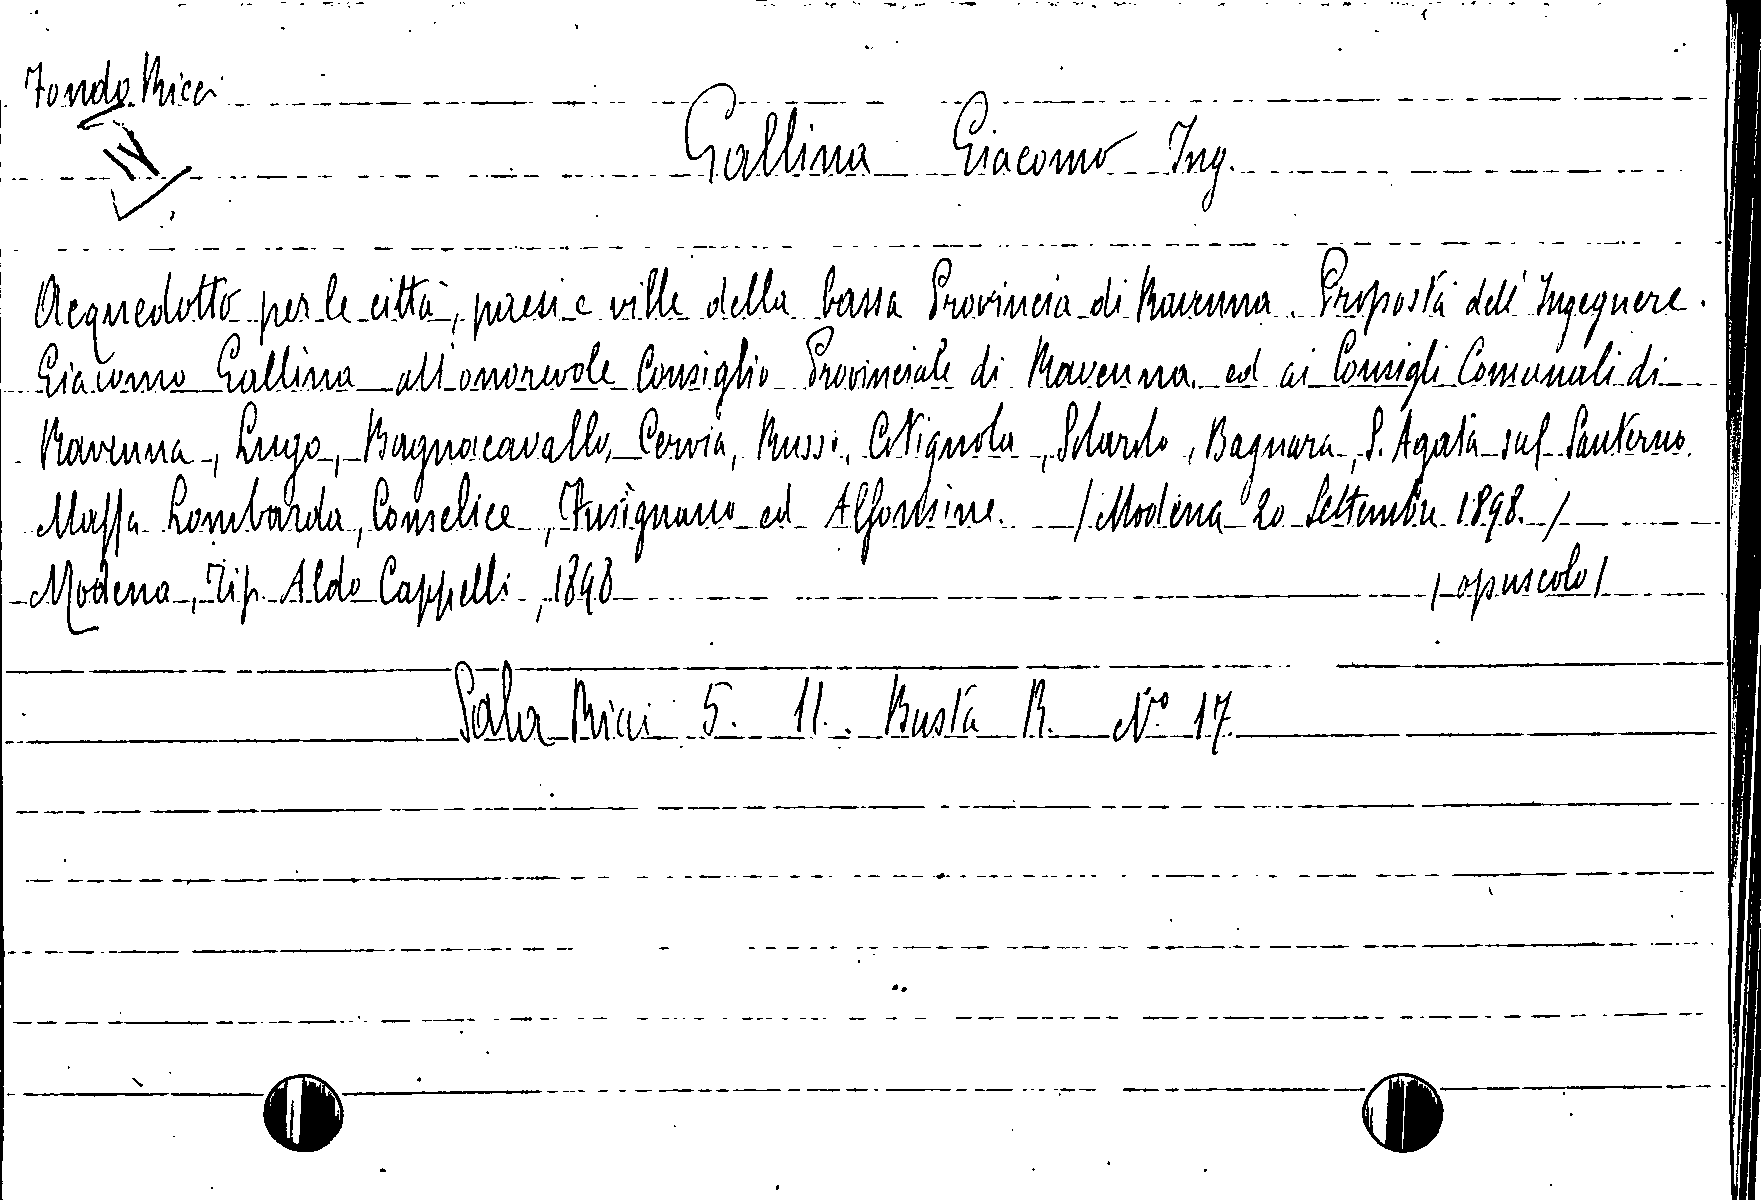 Fondo Ricci
IV
Gallina Giacomo Ing.
Acquedotto per le città, paesi e ville della bassa Provincia di Ravenna. Proposta dell'Ingegnere
Giacomo Gallina all'onorevole Consiglio Provinciale di Ravenna ed ai Consigli Comunali di
Ravenna, Lugo, Bagnacavallo, Cervia, Russi, Cotignola, Solarolo, Bagnara, S. Agata sul Santerno
Massa Lombarda, Conselice, Fusignano ed Alfonsine. /Modena 20 Settembre 1898./
Modena, Tip. Aldo Cappelli, 1898 /opuscolo/
Sala Ricci 5. 11. Busta R. N° 17